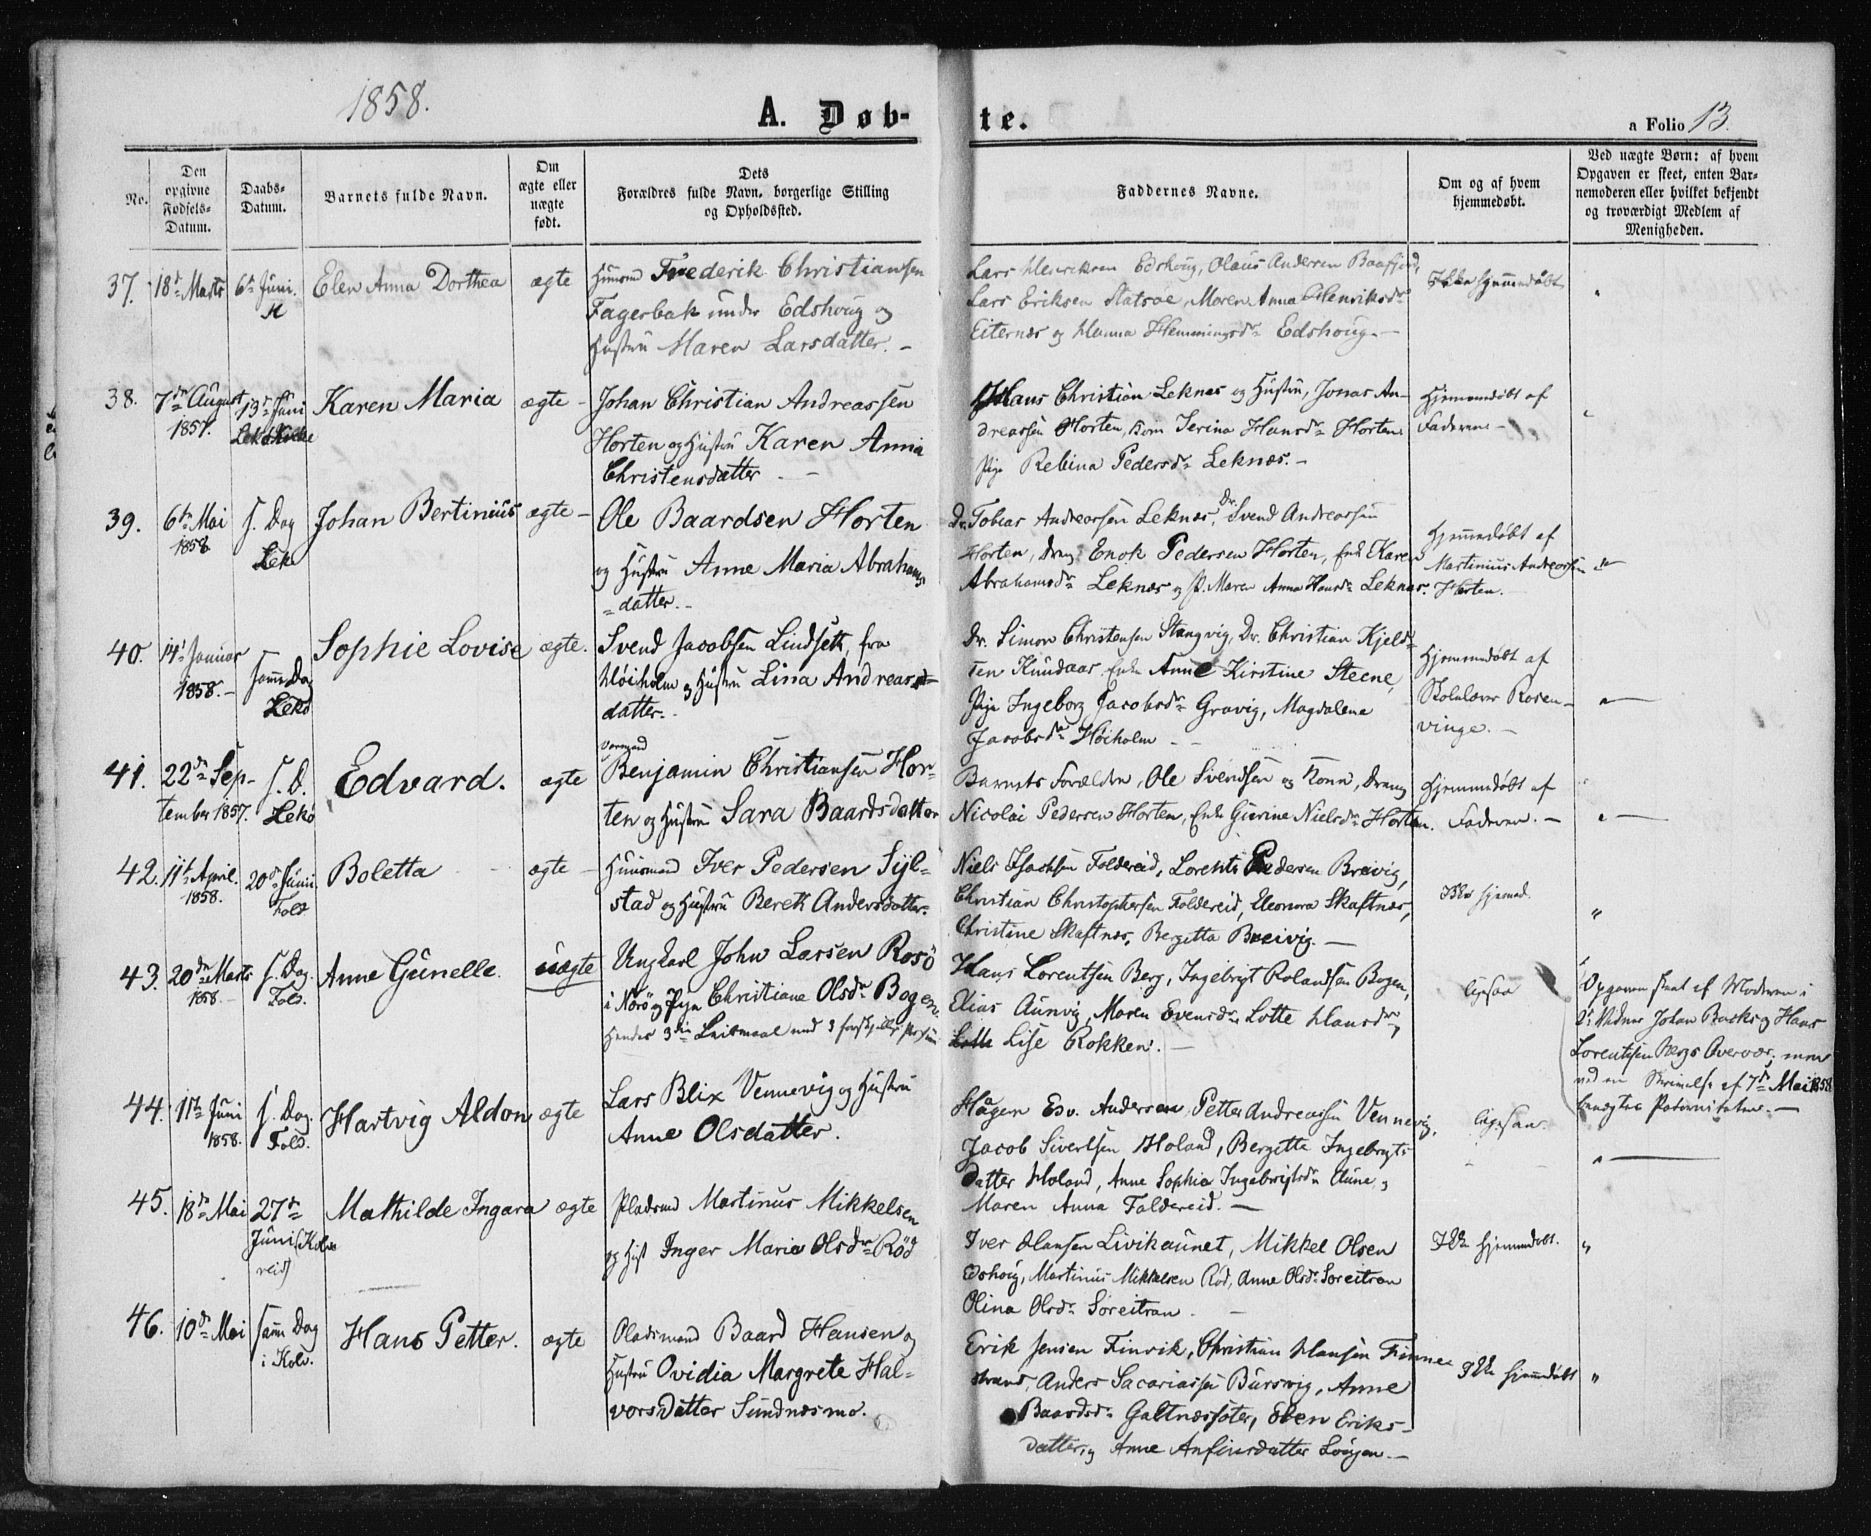 1858.
A. Døb-
te.
a Folio 13.
No.
Den opgivne Fødsels-Datum.
Daabs-Datum.
Barnets fulde Navn.
Om ægte eller uægte født.
Dets Forældres fulde Navn, borgerlige Stilling og Opholdssted.
Faddernes Navne.
Om og af hvem hjemmedøbt.
Ved uægte Børn: af hvem Opgaven er skeet, enten Barnemoderen eller hvilket bekjendt og troværdigt Medlem af Menigheden.
37. 18de Marts 6te Juni. Elen Anna Dorthea ægte
Huusmd Frederik Christiansen
Fagerbak under Edshoug og
Hustru Maren Larsdatter. –
Lars Henriksen Edshoug, Olaus Andersen Baafjord,
Lars Eriksen Statsøe, Maren Anna Henriksdr
Eiternæs og Hanna Hemmingsdr Edshoug –
Ikke hjemmedøbt
38. 7de August 1857. 13de Juni Lekø Kirke Karen Maria ægte –
Johan Christian Andreassen
Horten og Hustru Karen Anna
Christensdatter –
Hans Christian Leknæs og Hustru, Jonas An-
dreassen Horten, Serina Hansdr Horten
Pige Rebina Pedersdr Leknæs. –
Hjemmedøbt af
Faderen –
39. 6te Mai 1858. s. Dag Lekø Johan Bertinius ægte –
Ole Baardsen Horten
og Hustru Anne Maria Abrahams
= datter. –
Dr. Tobias Andreassen Leknæs, Dr. Svend Andreassen
Horten, Dreng Enok Pedersen Horten, Enke Karen
Abrahamsdr Leknæs og P. Maren Anna Hansdr Leknæs.
Hjemmedøbt af
Martinius Andreassen
Horten. –
40. 14de Januar 1858. – samme Dag Lekø Sophie Lovise ægte.
Svend Jacobsen Lindseth, fra
Høiholm og Hustru Lina Andreas-
datter. –
Dr. Simon Christensen Stangvig, Dr. Christian Kjeld-
sen Knudaas Enke Anne Kirstine Steene,
Pige Ingeborg Jacobsdr Gravig, Magdalena
Jacobsdr Høiholm – –
Hjemmedøbt af
Skolelærer Rosen-
vinge. –
41. 22de Sep-
tember 1857. s. D. Lekø Edvard. ægte
Benjamin Christiansen Hor-
ten og Hustru Sara Baardsdatter
Barnets Forældre, Ole Svendsen og Kone, Dreng
Nicolai Pedersen Horten, Enke Gurine Nielsdr Horten.
Hjemmedøbt af
Faderen. –
42. 11te April. 1858. 20de Juni Fold Boletta ægte –
Huusmand Iver Pedersen Syl-
stad og Hustru Bereth Andersdatter.
Niels Isachsen Foldereid, Lorents Pedersen Breivig,
Christian Christophersen Foldereid, Eleonora Skaftnæs,
Christine Skaftnæs, Bergitta Breivig. –
Ikke hjemmed.
43. 20de Marts 1858. s. Dag Fold. Anne Gunelle. uægte
Ungkarl John Larsen Rosø
i Nærø og Pige Christiane Olsdr Bogen,
Hendes 3die Leiermaal med 3 forskjellige Personer
Hans Lorentsen Berg, Ingebrigt Rolandsen Bogen,
Elias Aunvig, Maren Evensdr Lotte Hansdr
Lise Rokken. –
ligesaa
Opgaven skeet af Moderen i
2de Vidner Johan Barks og Hans
Lorentsen Bergs Overvær, men
ved en Skrivelse af 7de Mai 1858
benægtes Paterniteten. –
44. 11te Juni 1858. s. Dag Fold. Hartvig Aldon ægte
Lars Blix Vennevig og Hustru
Anne Olsdatter.
Hågen Esv. Andersen Petter Andreassen Vennevig,
Jacob Sivertsen Holand, Bergitte Ingebrigts-
datter Holand, Anne Sophia Ingebrigtsdr Aune, og
Maren Anna Foldereid. –
ligesaa.
45. 18de Mai 27de Juni (Kolvereid) Mathilde Ingara ægte
Pladsmd Martinus Mikkelsen
og Hust Inger Maria Olsdr Rød
Iver Hansen Livikaunet, Mikkel Olsen
Edshoug, Martinus Mikkelsen Rød, Anne Olsdr Søreitran
Olina Olsdr Søreitran. –
Ikke hjemmedøbt.
46. 10de Mai samme Dag i Kolv. Hans Petter. ægte
Pladsmand Baard Hansen og
Hustru Ovidia Margrete Hal-
vorsdatter Sundnæsmo.
Erik Jensen Finvik, Christian Hansen Finne
strand, Anders Sacariassen Bursvig, Anne
Baardsdr Galtnæssæter, Eben Eriks-
datter, og Anne Anfinsdatter Løngen –
Ikke hjemmedøbt